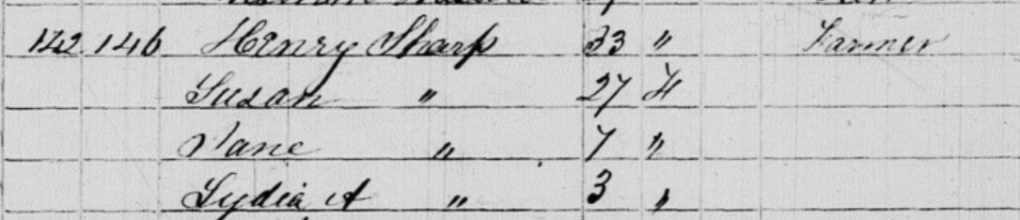 142 146 Henry Sharp 33 " Farmer
Susan " 27 F
Jane " 7 "
Lydia A " 3 "